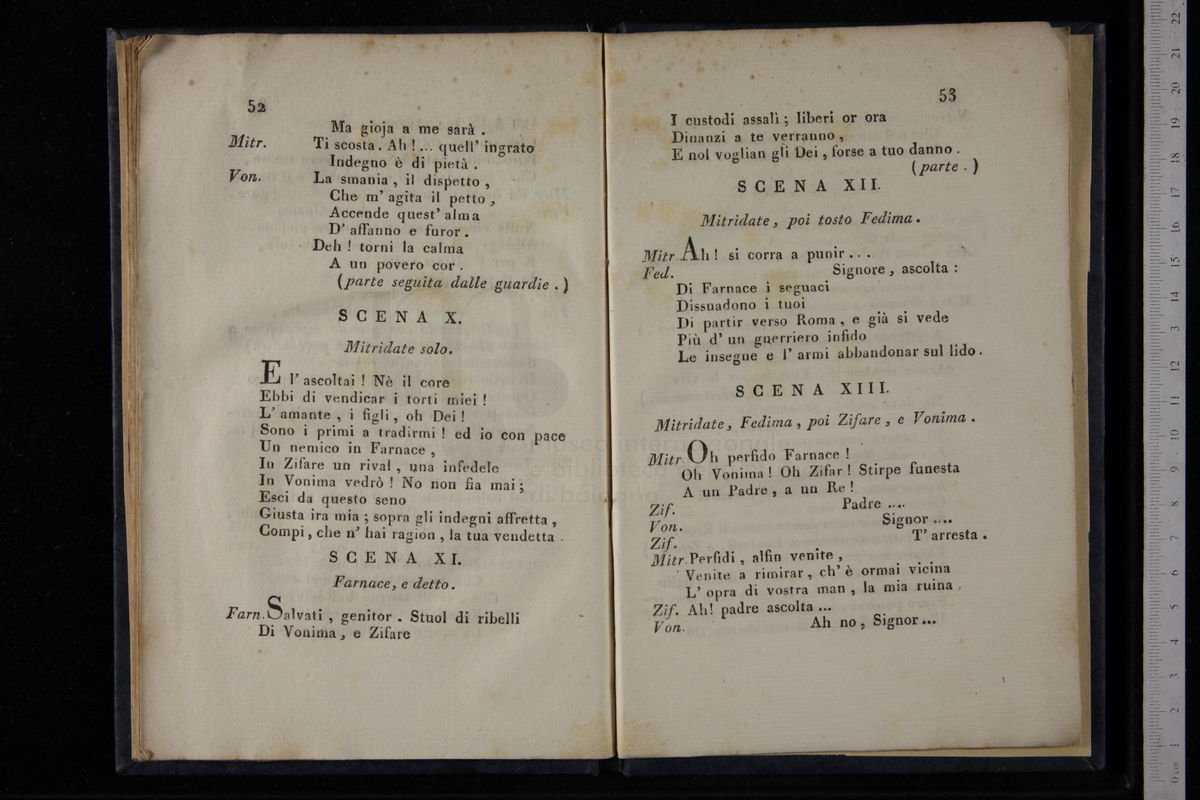 52
Ma gioja a me sarà .
Mitr. Ti scosta. Ah !... quell' ingrato
Indegno è di pietà .
Von. La smania , il dispetto ,
Che m' agita il petto ,
Accende quest' alma
D' affanno e furor .
Deh ! torni la calma
A un povero cor .
(parte seguita dalle guardie . )
SCENA X.
Mitridate solo.
E l' ascoltai ! Nè il core
Ebbi di vendicar i torti miei !
L' amante , i figli , oh Dei !
Sono i primi a tradirmi ! ed io con pace
Un nemico in Farnace ,
In Zifare un rival , una infedele
In Vonima vedrò ! No non fia mai ;
Esci da questo seno
Giusta ira mia ; sopra gli indegni affretta ,
Compi , che n' hai ragion , la tua vendetta .
SCENA XI.
Farnace, e detto .
Farn. Salvati , genitor . Stuol di ribelli
Di Vonima , e Zifare
53
I custodi assalì ; liberi or ora
Dinanzi a te verranno ,
E nol voglian gli Dei , forse a tuo danno .
(parte . )
SCENA XII.
Mitridate , poi tosto Fedima .
Mitr Ah ! si corra a punir . . .
Fed. Signore , ascolta :
Di Farnace i seguaci
Dissuadono i tuoi
Di partir verso Roma , e già si vede
Più d' un guerriero infido
Le insegne e l' armi abbandonar sul lido .
SCENA XIII.
Mitridate , Fedima , poi Zifare , e Vonima .
Mitr Oh perfido Farnace !
Oh Vonima ! Oh Zifar ! Stirpe funesta
A un Padre , a un Re !
Zif. Padre ....
Von. Signor ....
Zif. T' arresta .
Mitr. Perfidi , alfin venite ,
Venite a rimirar , ch' è ormai vicina
L' opra di vostra man , la mia ruina .
Zif. Ah! padre ascolta ...
Von. Ah no , Signor ...
museo internazionale
e biblioteca
di bologna
0 cm 1 2 3 4 5 6 7 8 9 10 11 12 13 14 15 16 17 18 19 20 21 22